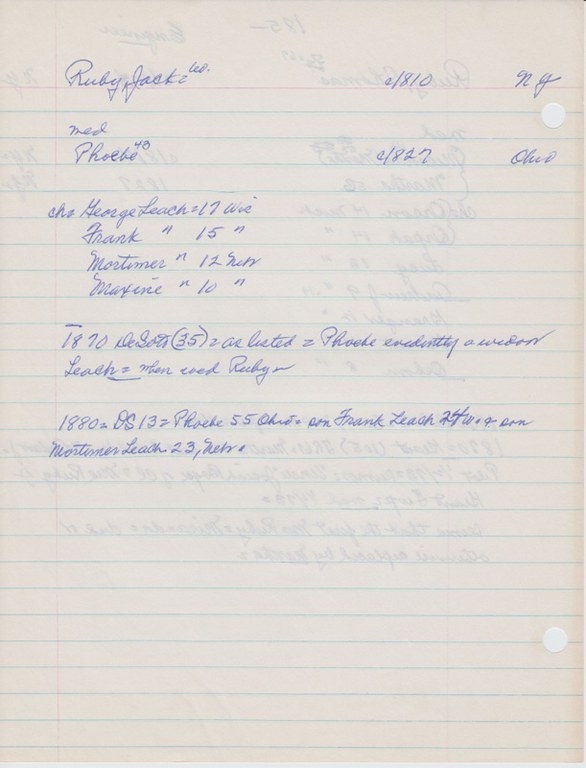 Ruby, Jack = 60. c/1810 N Y
med
Phoebe 43 c/1827 Ohio
ch = George Leach = 17 Wis
Frank " 15 "
Mortimer " 12 Nebr
Maxine " 10 "
1870 DeSoto (35) = as listed = Phoebe evidently a widow
Leach = when wed Ruby -
1880 = DS 13 = Phoebe 55 Ohio = son Frank Leach 24 W. & son
Mortimer Leach 23, Nebr.